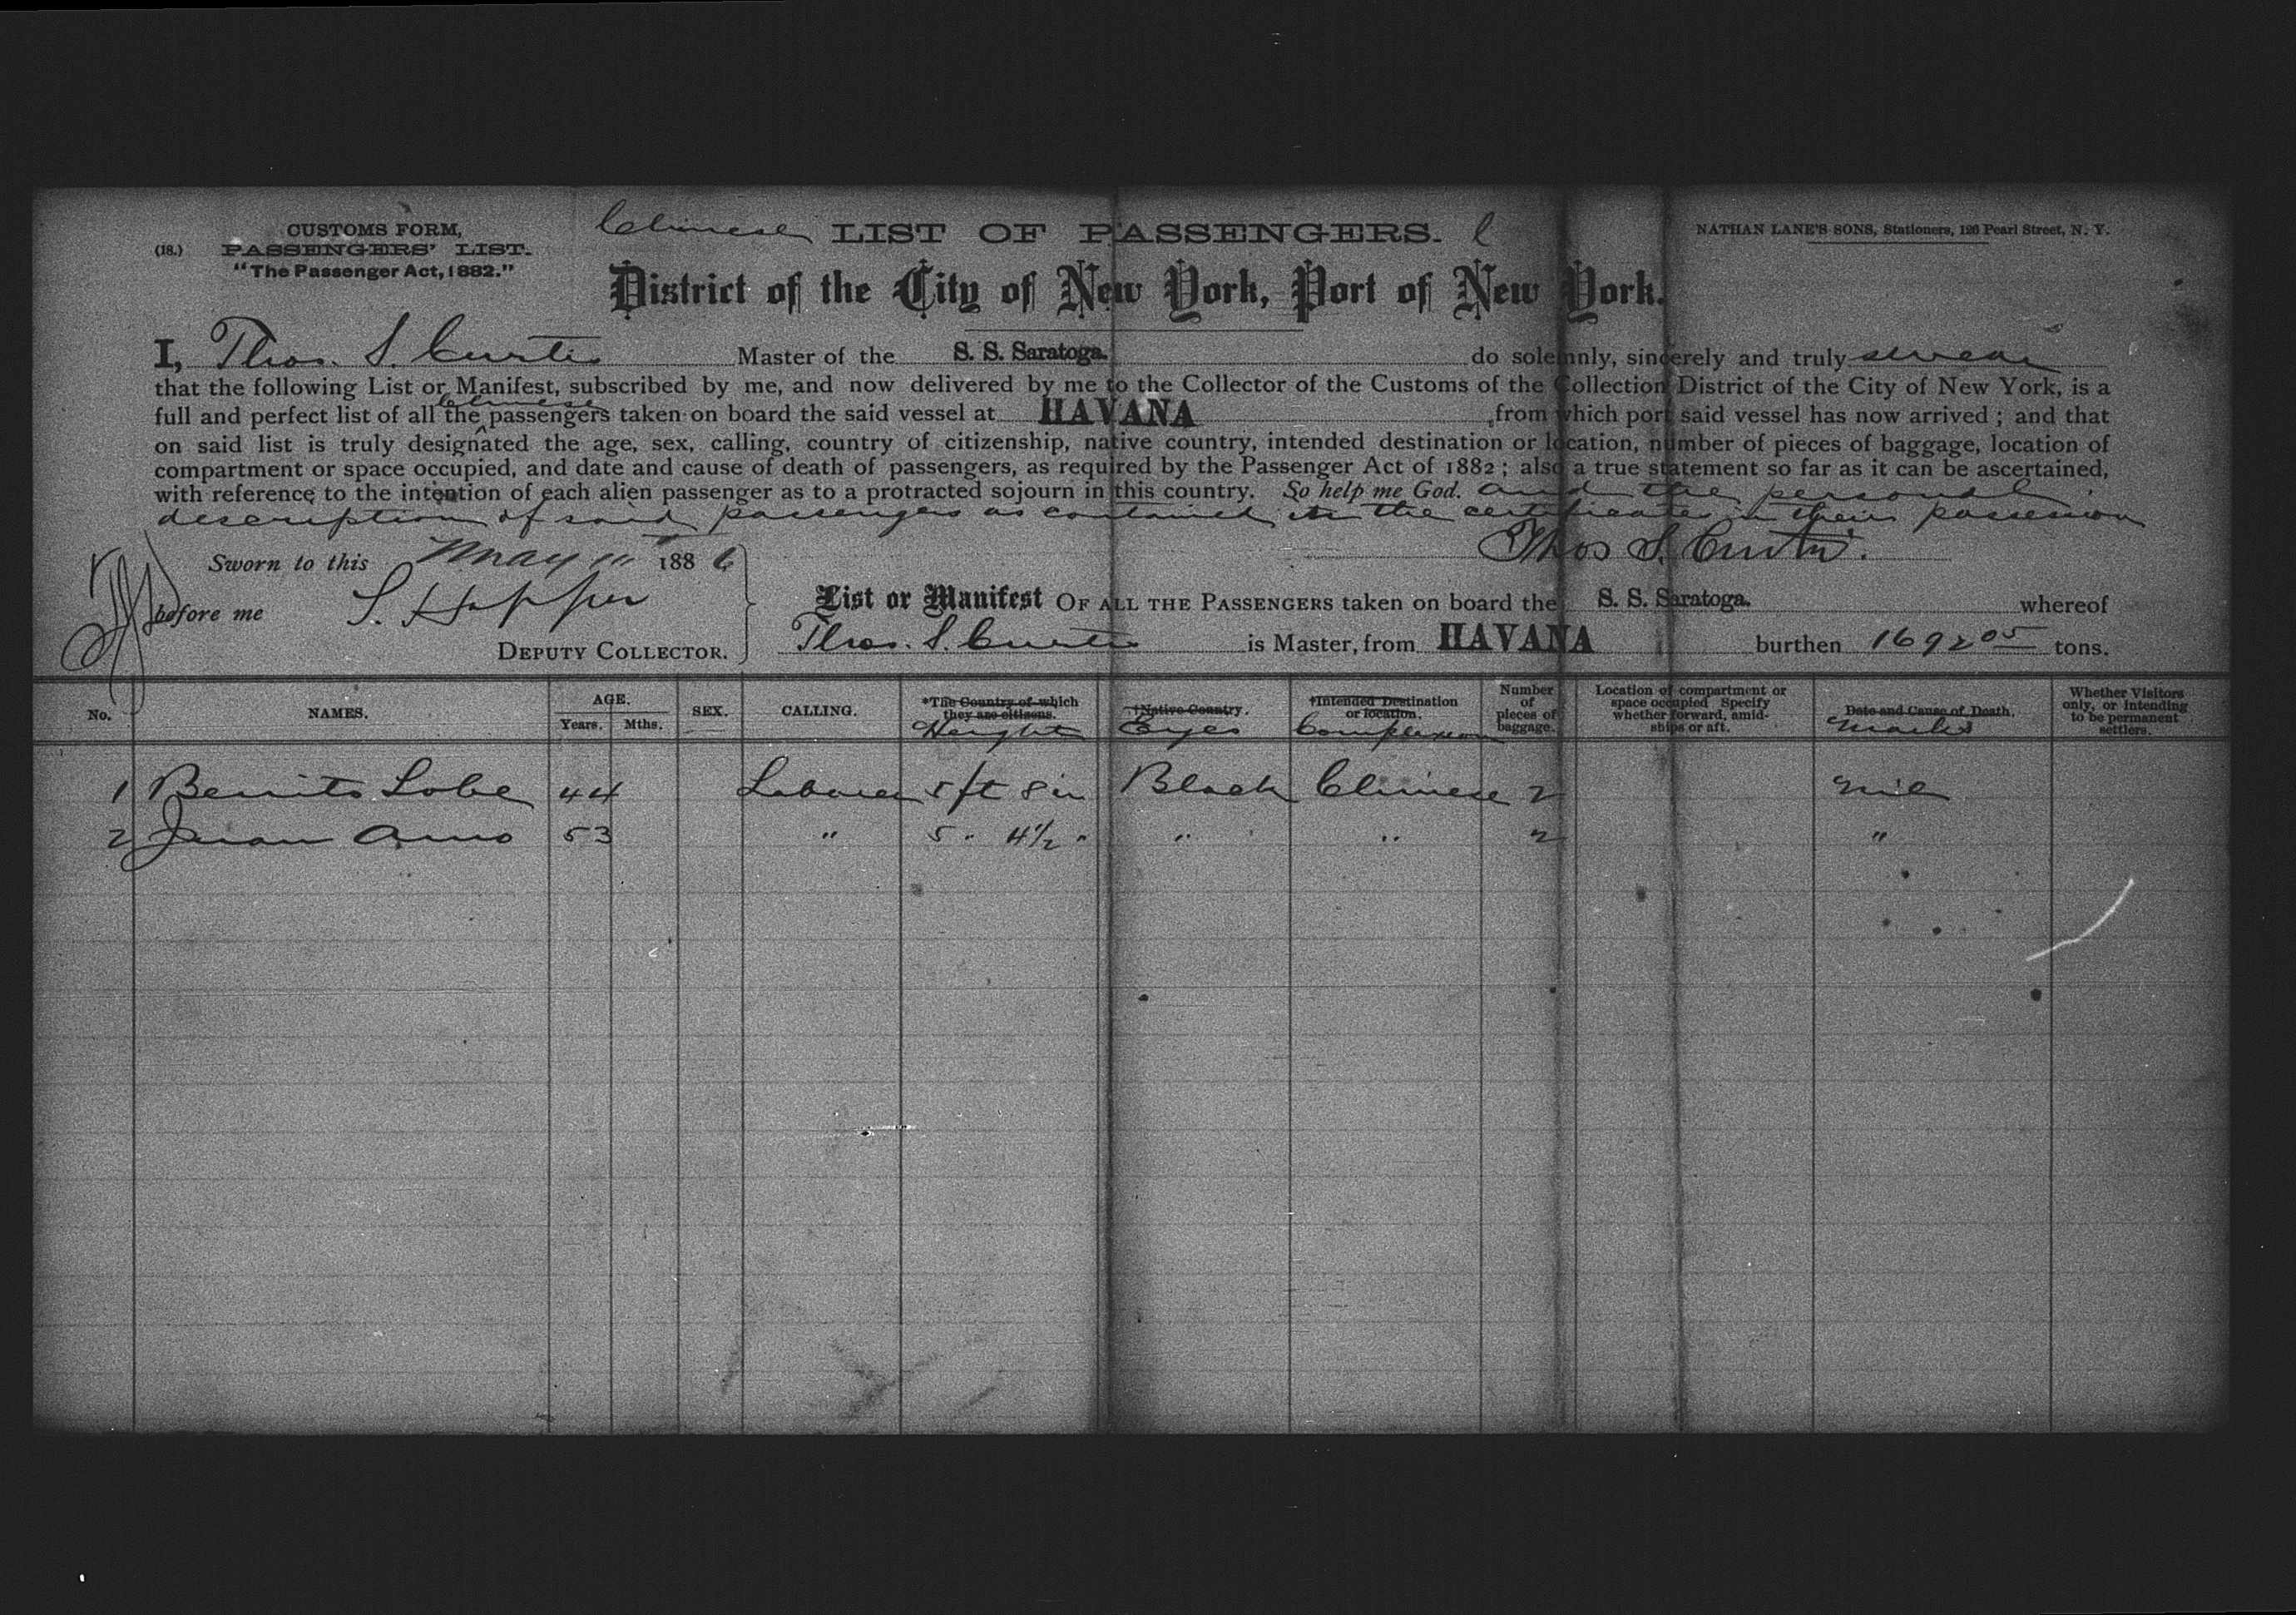 CUSTOMS FORM,
(18.) PASSENGERS' LIST.
"The Passenger Act, 1882."
Chinese LIST OF PASSENGERS.
NATHAN LANE'S SONS, Stationers, 126 Pearl Street, N. Y.
District of the City of New York, Port of New York.
I, Thos. S. Curtis Master of the S. S. Saratoga. do solemnly, sincerely and truly swear
that the following List or Manifest, subscribed by me, and now delivered by me to the Collector of the Customs of the Collection District of the City of New York, is a
full and perfect list of all the Chinese passengers taken on board the said vessel at HAVANA, from which port said vessel has now arrived; and that
on said list is truly designated the age, sex, calling, country of citizenship, native country, intended destination or location, number of pieces of baggage, location of
compartment or space occupied, and date and cause of death of passengers, as required by the Passenger Act of 1882; also a true statement so far as it can be ascertained,
with reference to the intention of each alien passenger as to a protracted sojourn in this country. So help me God. and the personal
description of said passengers as contained in the certificates in their possession
Thos S. Curtis.
Sworn to this May 11" 1886
before me S. Hopper
DEPUTY COLLECTOR.
List or Manifest OF ALL THE PASSENGERS taken on board the S. S. Saratoga. whereof
Thos. S. Curtis is Master, from HAVANA burthen 1692 05 tons.
No. NAMES. AGE. Years. Mths. SEX. CALLING. *The Country of which they are citizens. Height †Native Country. Eyes †Intended Destination or location. Complexion Number of pieces of baggage. Location of compartment or space occupied Specify whether forward, amidships or aft. Date and Cause of Death. Marks Whether Visitors only, or intending to be permanent settlers.
1 Benito Lobe 44 Laborer 5 ft 8 in Black Chinese 2 nil
2 Juan Amo 53 " 5 " 4½ " " " 2 "